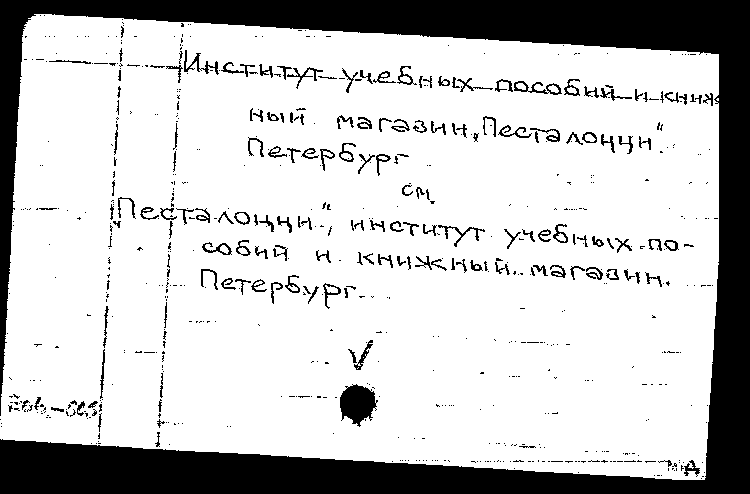 Институт учебных пособий и книж
ный магазин „Песталоцци“.
Петербург
см.
„Песталоцци“, институт учебных по-
собий и книжный магазин.
Петербург.
V